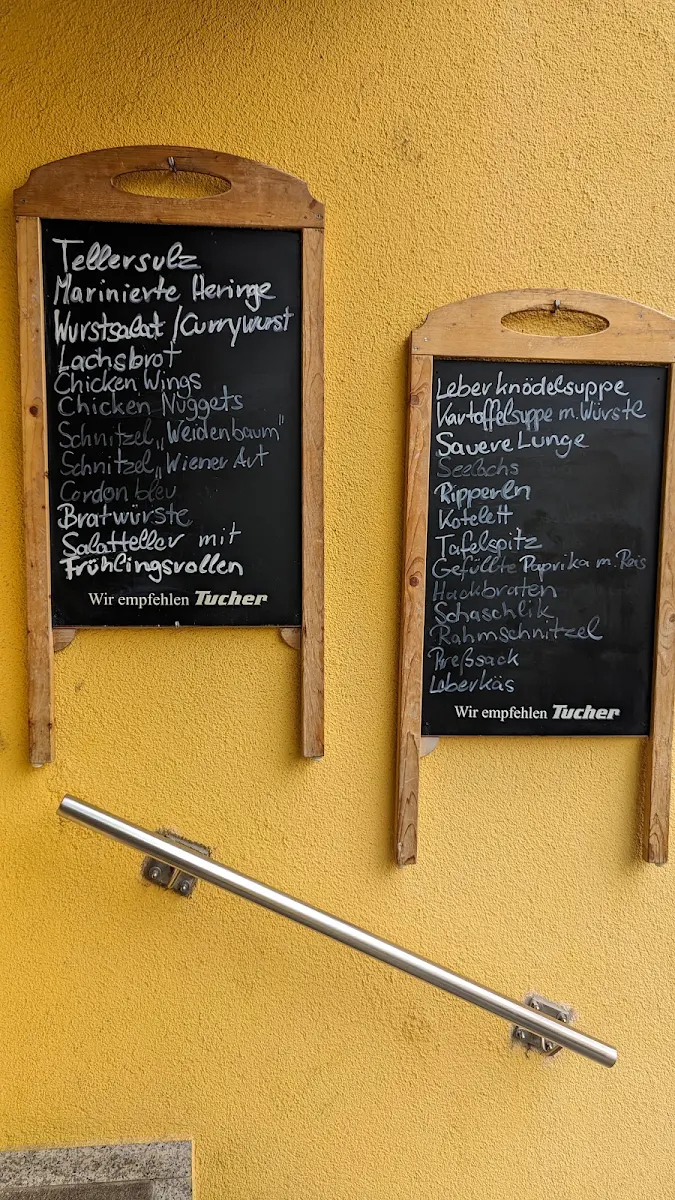 Tellersulz
Marinierte Heringe
Wurstsalat / Currywurst
Lachsbrot
Chicken Wings
Chicken Nuggets
Schnitzel „Weidenbaum"
Schnitzel „Wiener Art
Cordon bleu
Bratwürste
Salatteller mit
Frühlingsrollen
Wir empfehlen Tucher
Leberknödelsuppe
Kartoffelsuppe m. Würstl
Sauere Lunge
Seelachs
Ripperln
Kotelett
Tafelspitz
Gefüllte Paprika m. Reis
Hackbraten
Schaschlik
Rahmschnitzel
Preßsack
Leberkäs
Wir empfehlen Tucher